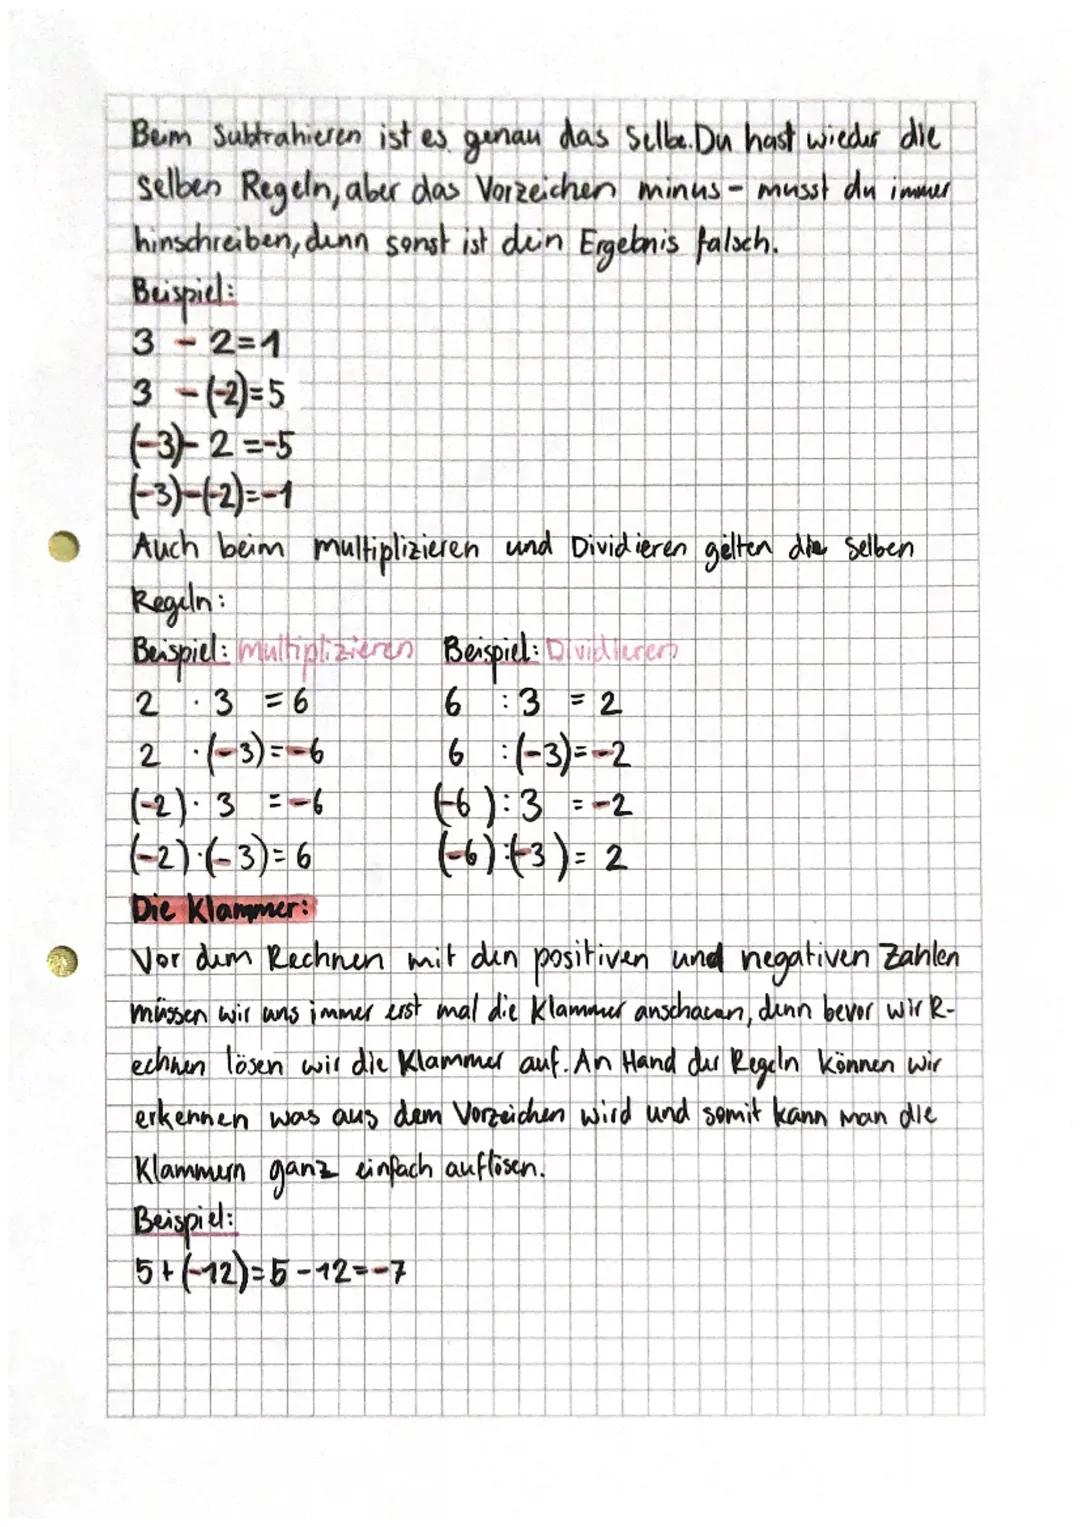 Beim Subtrahieren ist es genau das Selbe. Du hast wieder die
selben Regeln, aber das Vorzeichen minus - musst du immer
hinschreiben, denn sonst ist dein Ergebnis falsch.
Beispiel:
3 - 2 = 1
3 - (-2) = 5
(-3) - 2 = -5
(-3) - (-2) = -1
Auch beim multiplizieren und Dividieren gelten die Selben
Regeln:
Beispiel: multiplizieren Beispiel: Dividieren
2 · 3 = 6 6 : 3 = 2
2 · (-3) = -6 6 : (-3) = -2
(-2) · 3 = -6 (-6) : 3 = -2
(-2) · (-3) = 6 (-6) : (-3) = 2
Die Klammer:
Vor dem Rechnen mit den positiven und negativen Zahlen
müssen wir uns immer erst mal die Klammer anschauen, denn bevor wir R-
echnen lösen wir die Klammer auf. An Hand der Regeln können wir
erkennen was aus dem Vorzeichen wird und somit kann man die
Klammern ganz einfach auflösen.
Beispiel:
5 + (-12) = 5 - 12 = -7